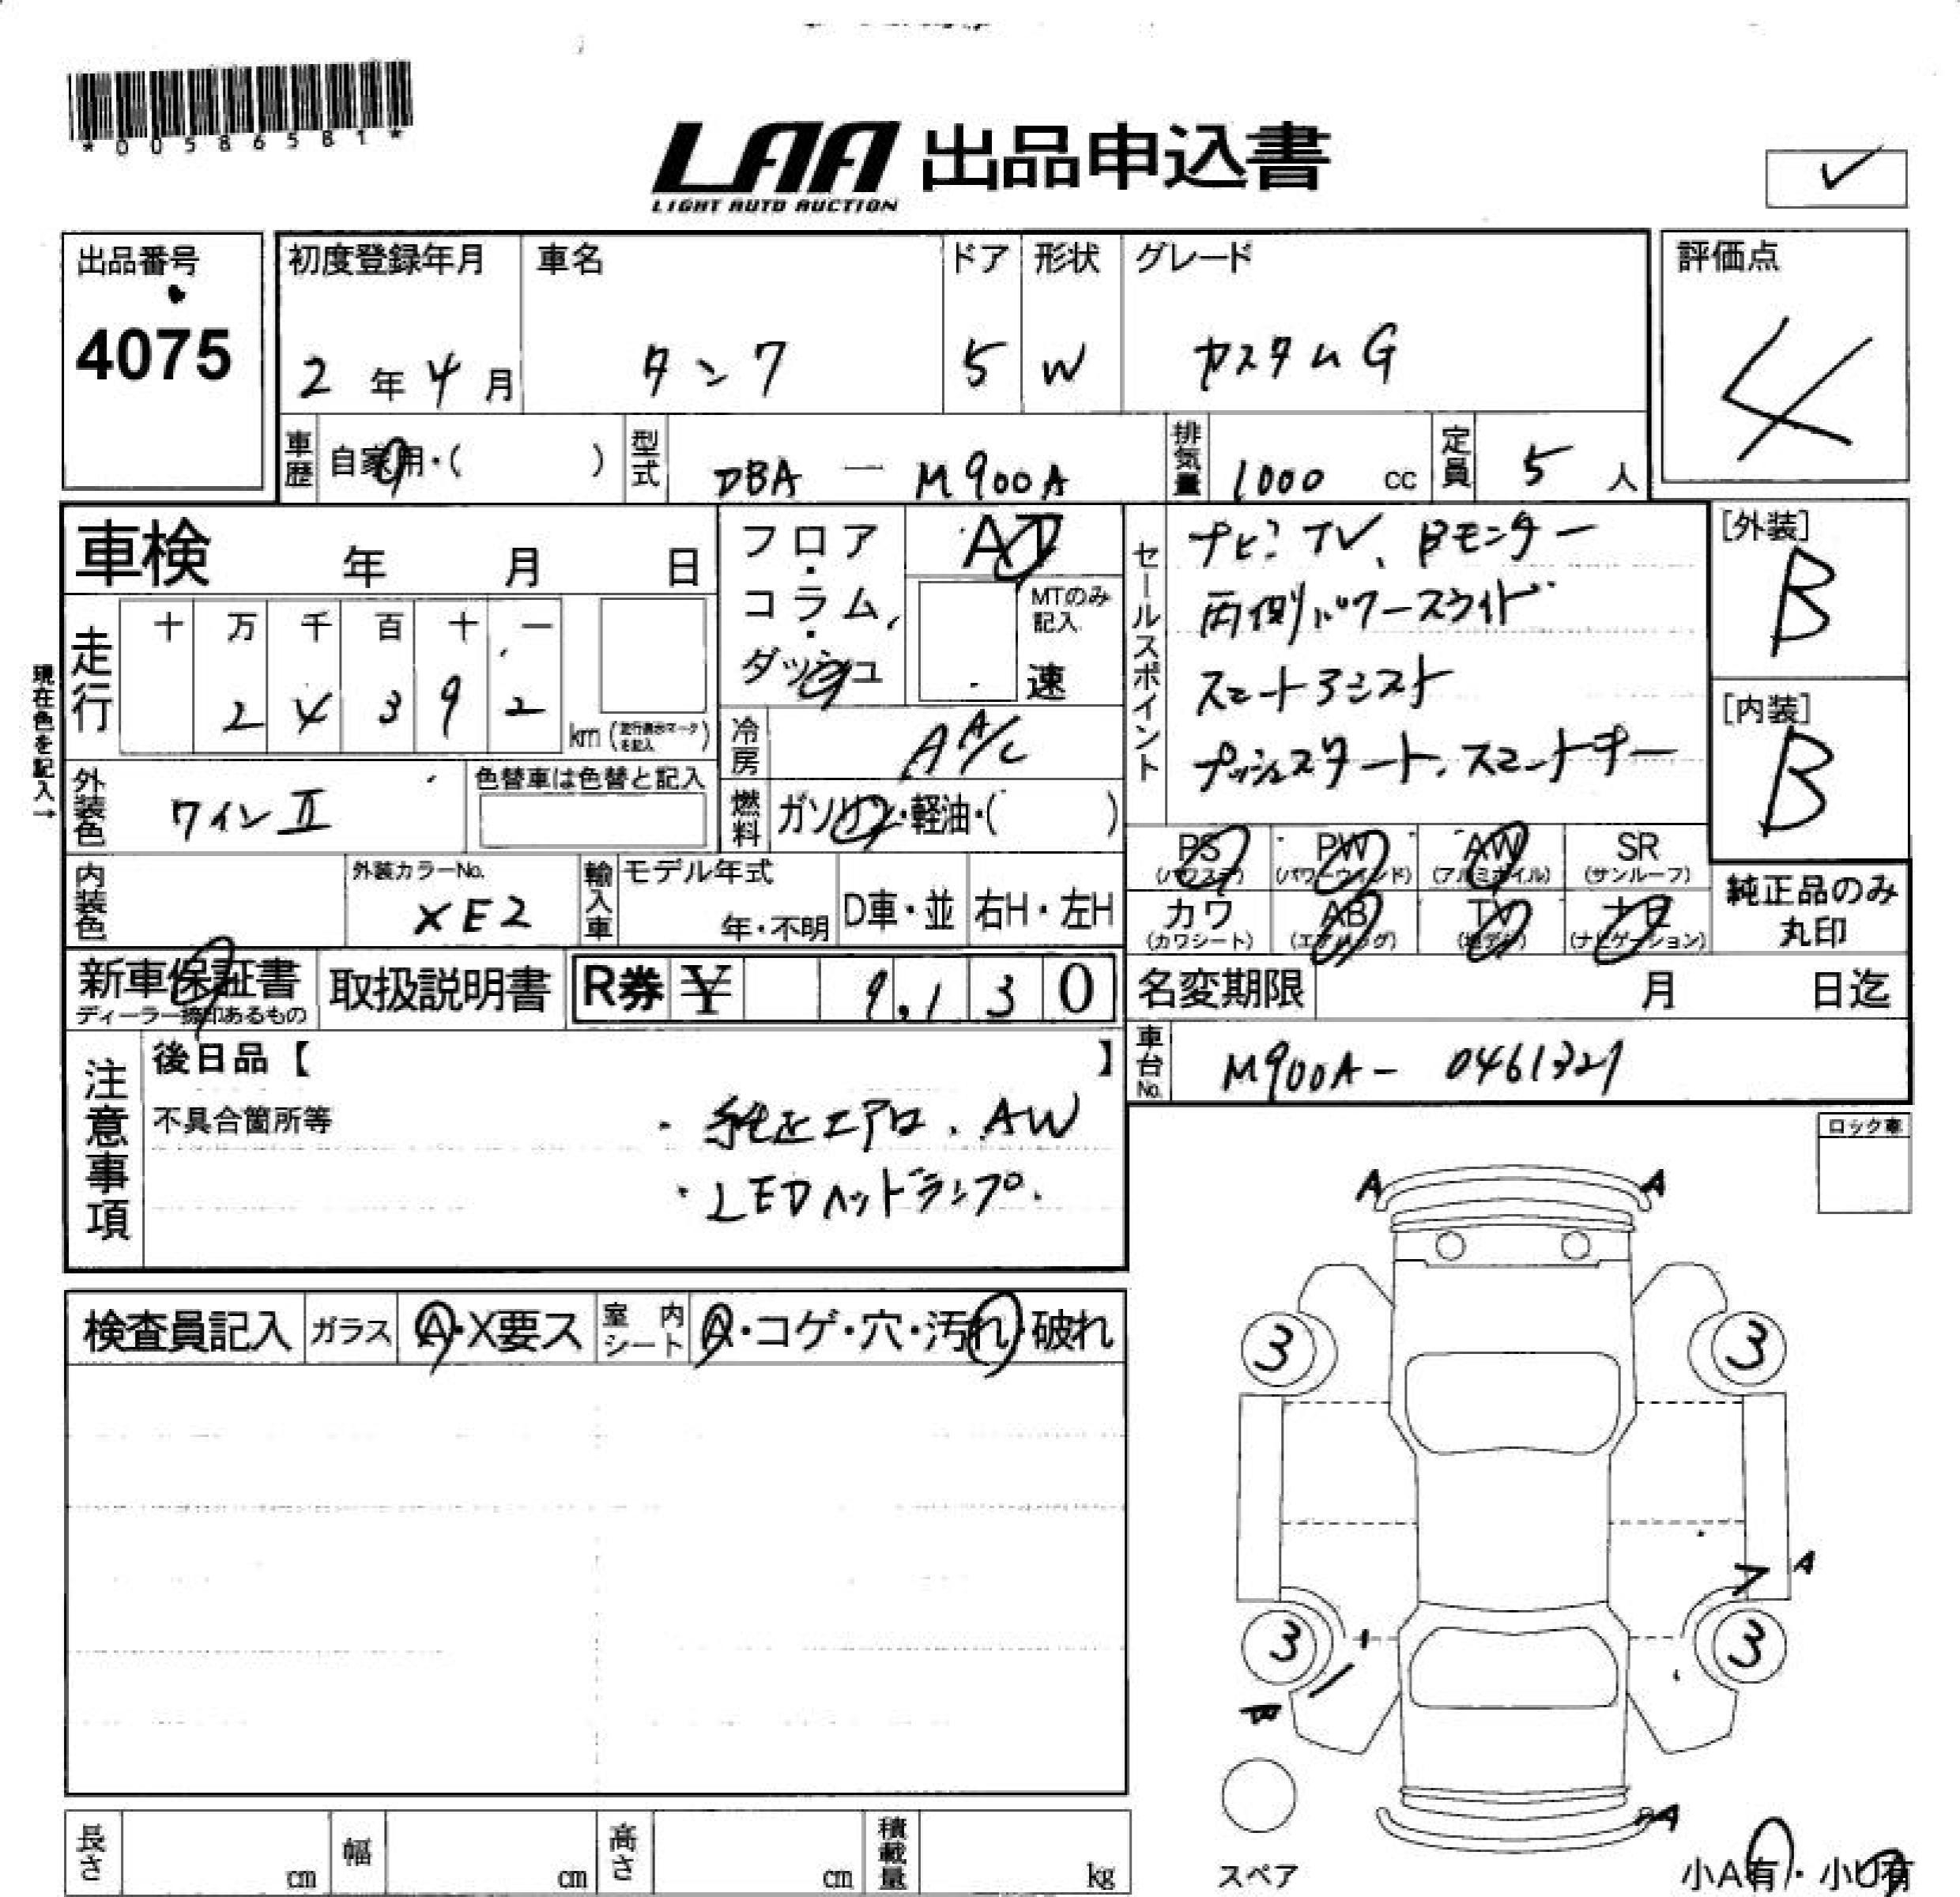 *00586581*
LAA 出品申込書
LIGHT AUTO AUCTION
✓
出品番号
4075
初度登録年月
2年4月
車名
タンク
ドア
5
形状
W
グレード
カスタムG
評価点
4
車歴 自家用・( )
型式 DBA－M900A
排気量 1000 cc
定員 5 人
車検 年 月 日
フロア・コラム・ダッシュ
AT
MTのみ記入
速
セールスポイント
ナビ、TV、Bモニター
両側パワースライド
スマートアシスト
プッシュスタート、スマートキー
[外装]
B
[内装]
B
現在色を記入→
走行
十 万 千 百 十 一
2 4 3 9 2
km (走行表示マークを記入)
冷房 AA/C
外装色 ワインⅡ
色替車は色替と記入
燃料 ガソリン・軽油・( )
内装色
外装カラーNo.
XE2
輸入車
モデル年式
年・不明
D車・並
右H・左H
PS (パワステ)
PW (パワーウインド)
AW (アルミホイル)
SR (サンルーフ)
カワ (カワシート)
AB (エアバッグ)
TV (地デジ)
ナビ (ナビゲーション)
純正品のみ
丸印
新車保証書
ディーラー捺印あるもの
取扱説明書
R券 ¥ 9,130
名変期限 月 日迄
車台No. M900A- 0461327
注意事項
後日品【 】
不具合箇所等
・純正エアロ、AW
・LEDヘッドランプ.
ロック車
検査員記入
ガラス A・X要ス
室内シート A・コゲ・穴・汚れ・破れ
A A
3 3
A
3 3
A
スペア
小A有・小U有
長さ cm
幅 cm
高さ cm
積載量 kg